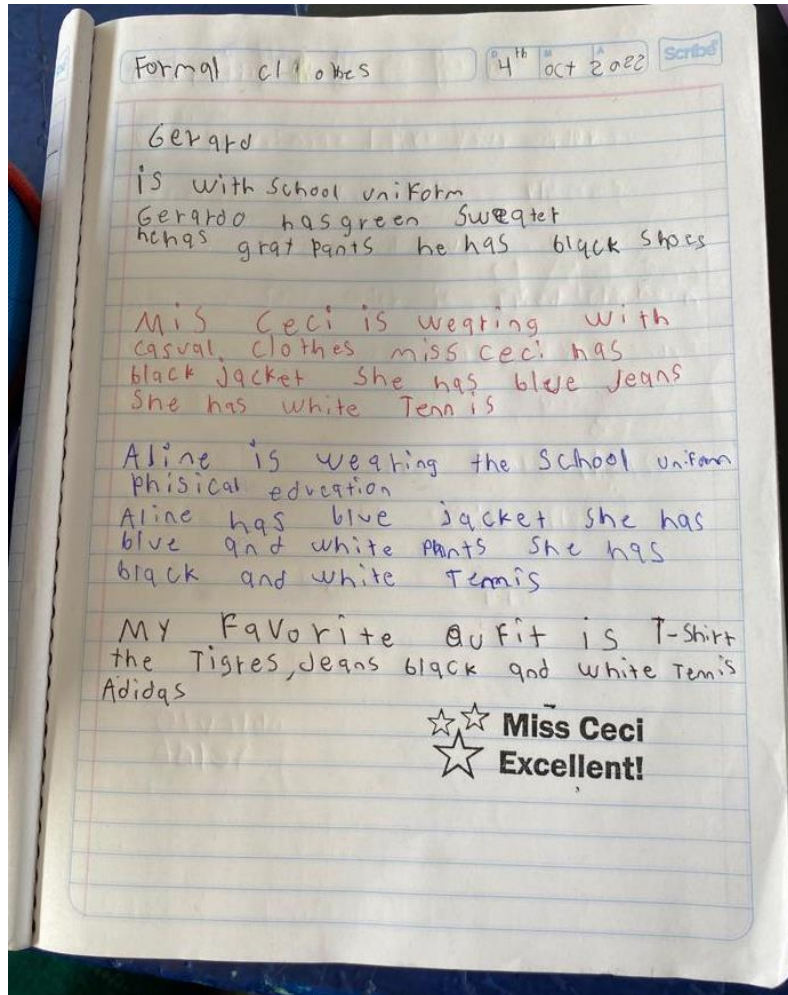 Formal cl1obes
D M A
4th oct 2022
Scribe
Gerard
is with School uniform
Gerardo has green Sweater
hehas grat pants he has black Shoes
Mis Ceci is wearing with
casual clothes miss ceci has
black Jacket She has blue Jeans
She has white Tennis
Aline is wearing the School uniform
phisical education
Aline has blue jacket she has
blue and white pants She has
black and white Temis
MY Favorite Oufit is T-Shirt
the Tigres, Jeans black and white Temis
Adidas
Miss Ceci
Excellent!